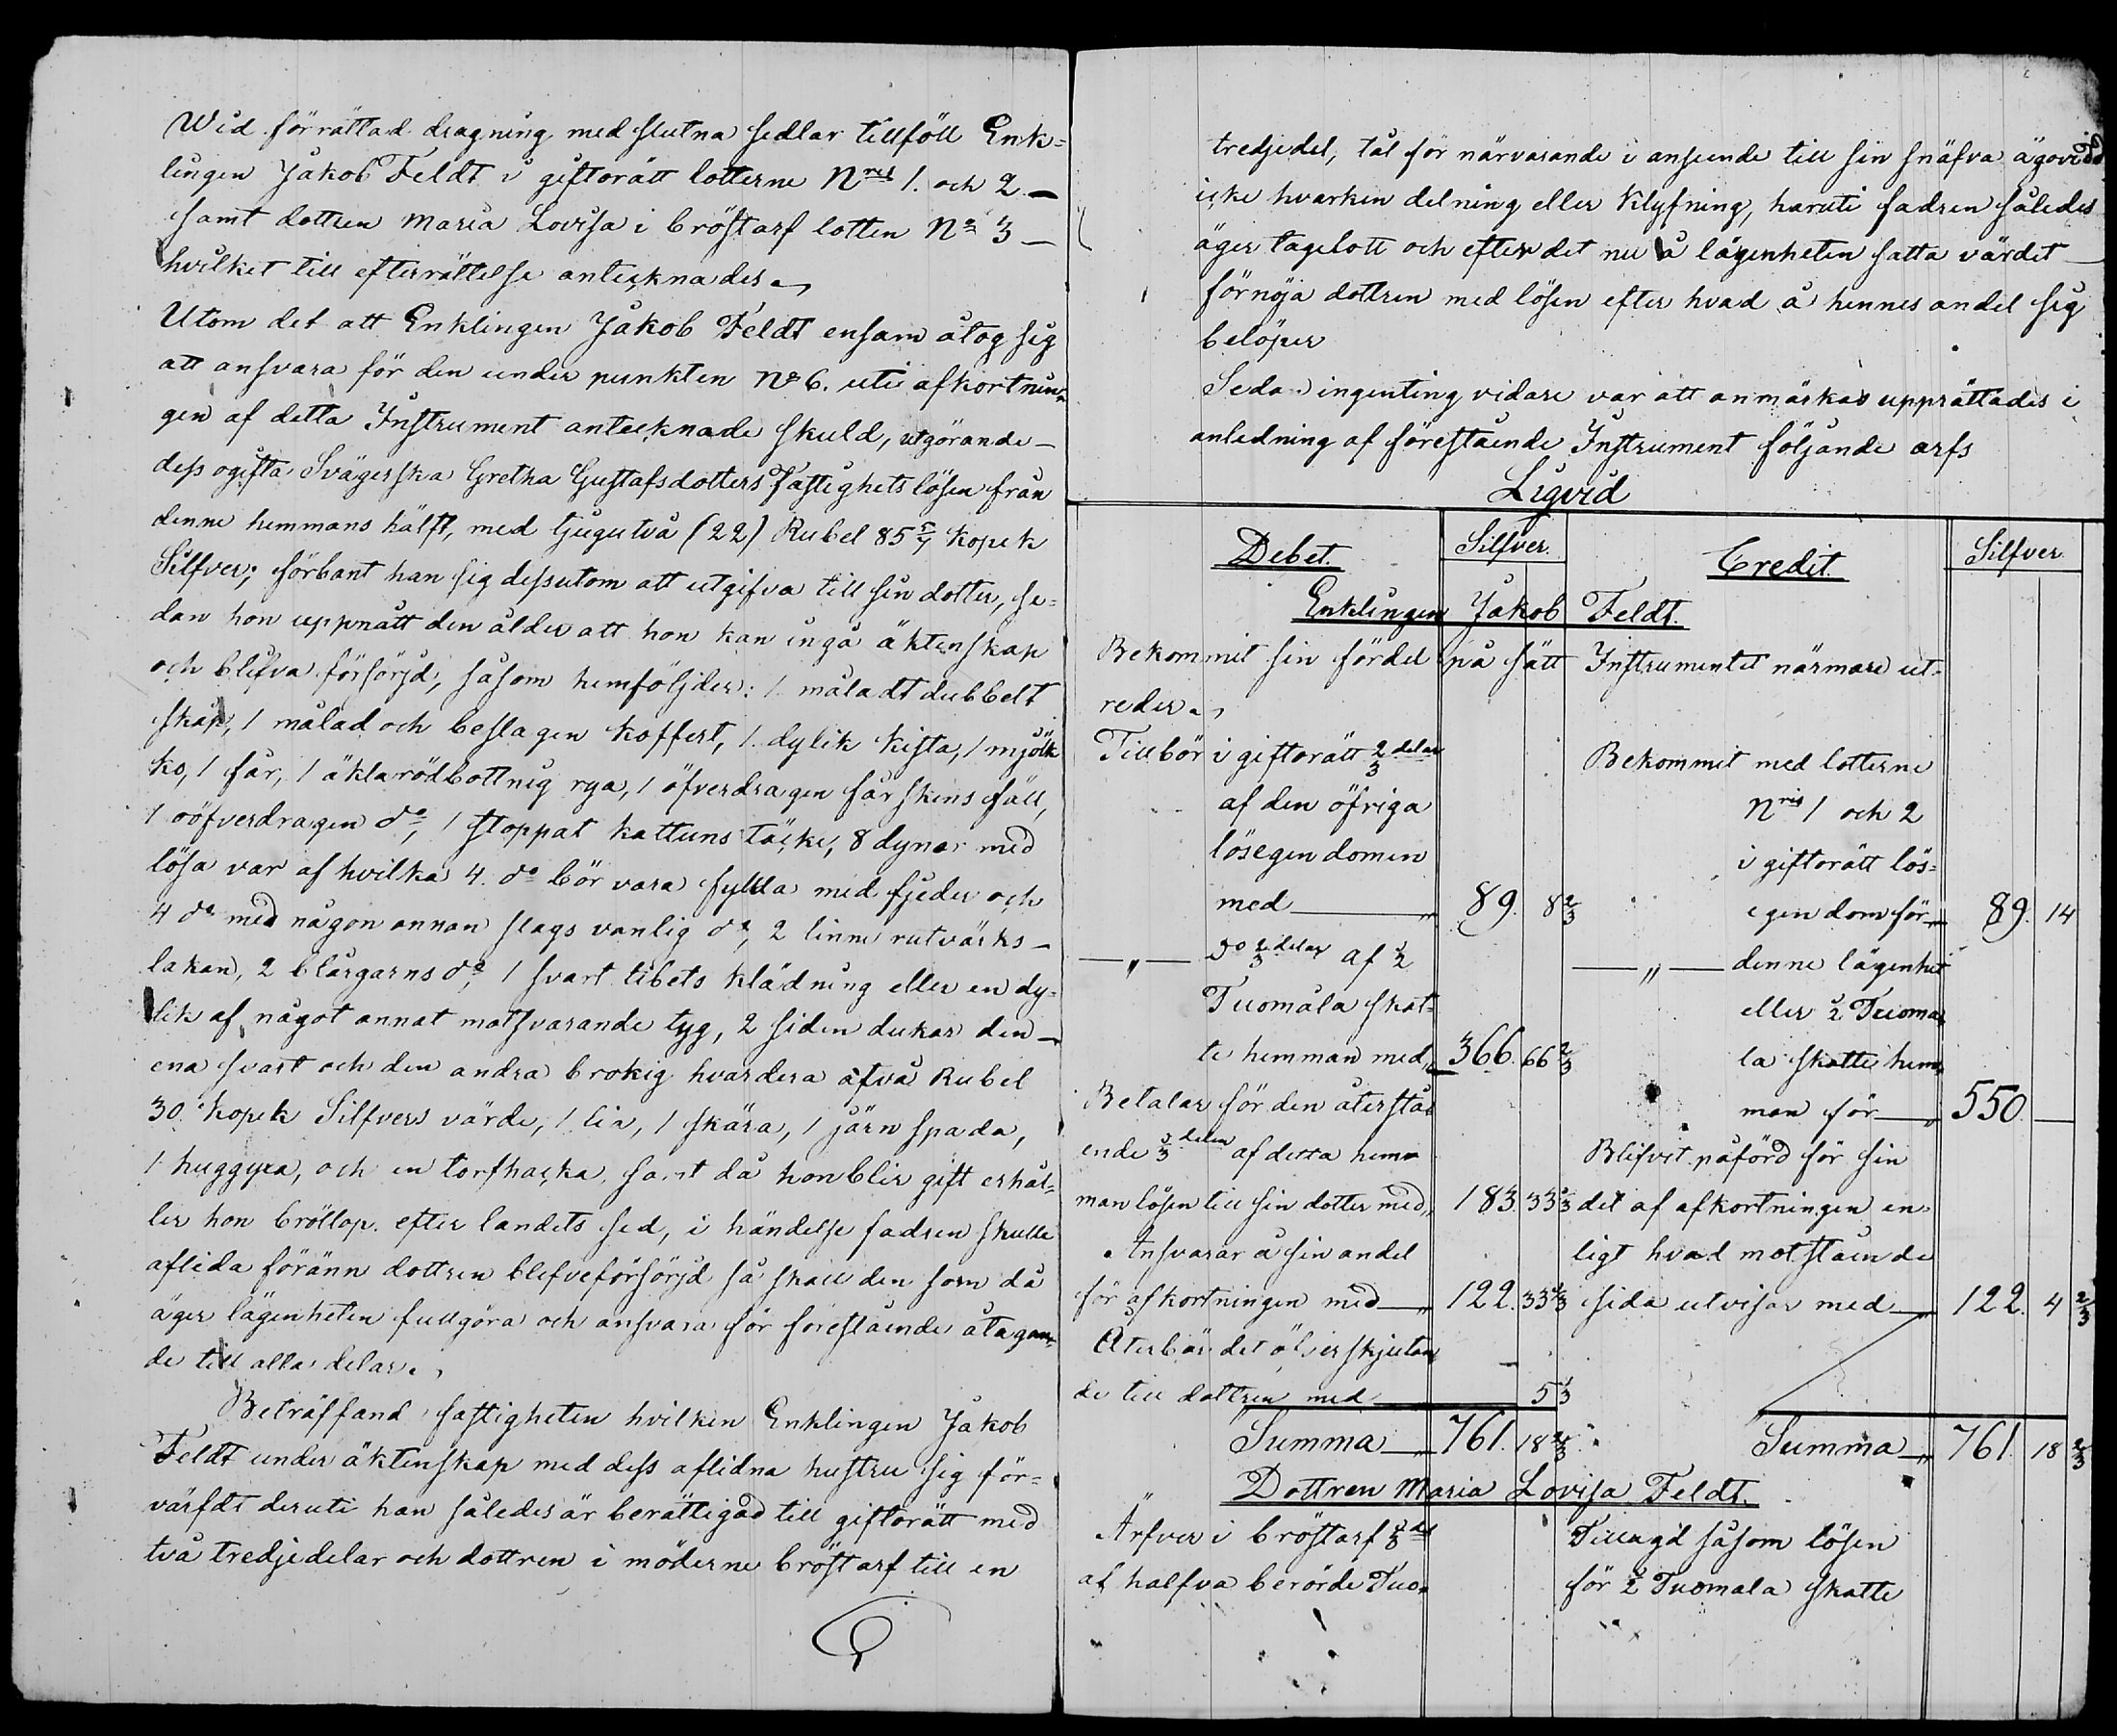 Wid förrättad dragning med slutna sedlar tillföll Enk=
lingen Jakob Feldt i giftorätt lotterne Nris 1. och 2 —
samt dottren Maria Lovisa i bröstarf lotten No 3 —
hvilket till efterrättelse antecknades.,
Utom det att Enklingen Jakob Feldt ensam åtog sig
att ansvara för den under punkten No 6. uti afkortnin=
gen af detta Instrument antecknade skuld, utgörande —
dess ogifta Svägerska Gretha Gustafsdotters Fastighets lösen från
denne hemmans hälft, med tjugutvå (22) Rubel 85 5/7 kopek
Silfver; förbant han sig dessutom att utgifva till sin dotter, se=
dan hon uppnått den ålder att hon kan ingå äktenskap
och blifva försörjd, såsom hemföljder: 1 måladt dubbelt
skåp, 1 målad och beslagen koffert, 1. dylik kista, 1 mjölk
ko, 1 får, 1 äkta rödbottnig rya, 1 öfverdragen fårskins fäll,
1 oöfverdragen do, 1 stoppat kattuns täcke, 8 dynor med
lösa var af hvilka 4. do bör vara fyllda med fjeder och
4 do med någon annan slags vanlig do, 2 linne rutvärks —
lakan, 2 blårgarns do, 1 svart tibets klädning eller en dy=
lik af något annat motsvarande tyg, 2 siden dukar den —
ena svart och den andra brokig hvardera af två Rubel
30 kopek Silfvers värde, 1 lia, 1 skära, 1 järn spada,
1 huggyxa, och en torfhacka, samt då hon blir gift erhål=
ler hon bröllop efter landets sed, i händelse fadren skulle
aflida föränn dottren blefve försörjd så skall den som då
äger lägenheten fullgöra och ansvara för förestående åtagan=
de till alla delar.,
Beträffand fastigheten hvilken Enklingen Jakob
Feldt under äktenskap med dess aflidna hustru sig för=
värfdt deruti han således är berättigad till giftorätt med
två tredjedelar och dottren i möderne bröstarf till en
tredjedel, tål för närvarande i anseende till sin snäfva ägovidd
icke hvarken delning eller klyfning, haruti fadren således
äger tagelott och efter det nu å lägenheten satta värdet —
förnöja dottren med lösen efter hvad å hennes andel sig
belöper
Sedan ingenting vidare var att anmärkas upprättades i
anledning af förestående Instrument följande arfs
Liqvid
Debet. Silfver. Credit. Silfver.
Enklingen Jakob Feldt.
Bekommit sin fördel på sätt Instrumentet närmare ut=
reder.,
Tillbör i giftorätt 2/3 delar Bekommit med lotterne
af den öfriga Nris 1 och 2
lösegendomen i giftorätt lös=
med — „ 89. 8 2/3 egendom för — 89. 14
— „ — do 2/3 delar af 1/2 — „ — denne lägenhet
Tuomala skat= eller 1/2 Tuoma=
te hemman med „ 366. 66 2/3 la skatte hem=
Betalar för den återstå= man för — „ 550. —
ende 1/3 delen af detta hem= Blifvit påförd för sin
man lösen till sin dotter med „ 183. 33 1/3 del af afkortningen en=
Ansvarar å sin andel ligt hvad motstående
för afkortningen med — „ 122. 33 1/3 sida utvisar med — „ 122. 4 2/3
Återbär det öfverskjutan=
de till dottren med — 5 1/3
Summa — „ 761. 18 2/3 Summa — „ 761. 18 2/3
Dottren Maria Lovisa Feldt.
Ärfver i bröstarf 1/3 del Tillagd såsom lösen
af halfva berörde Tuo= för 1/2 Tuomala skatte